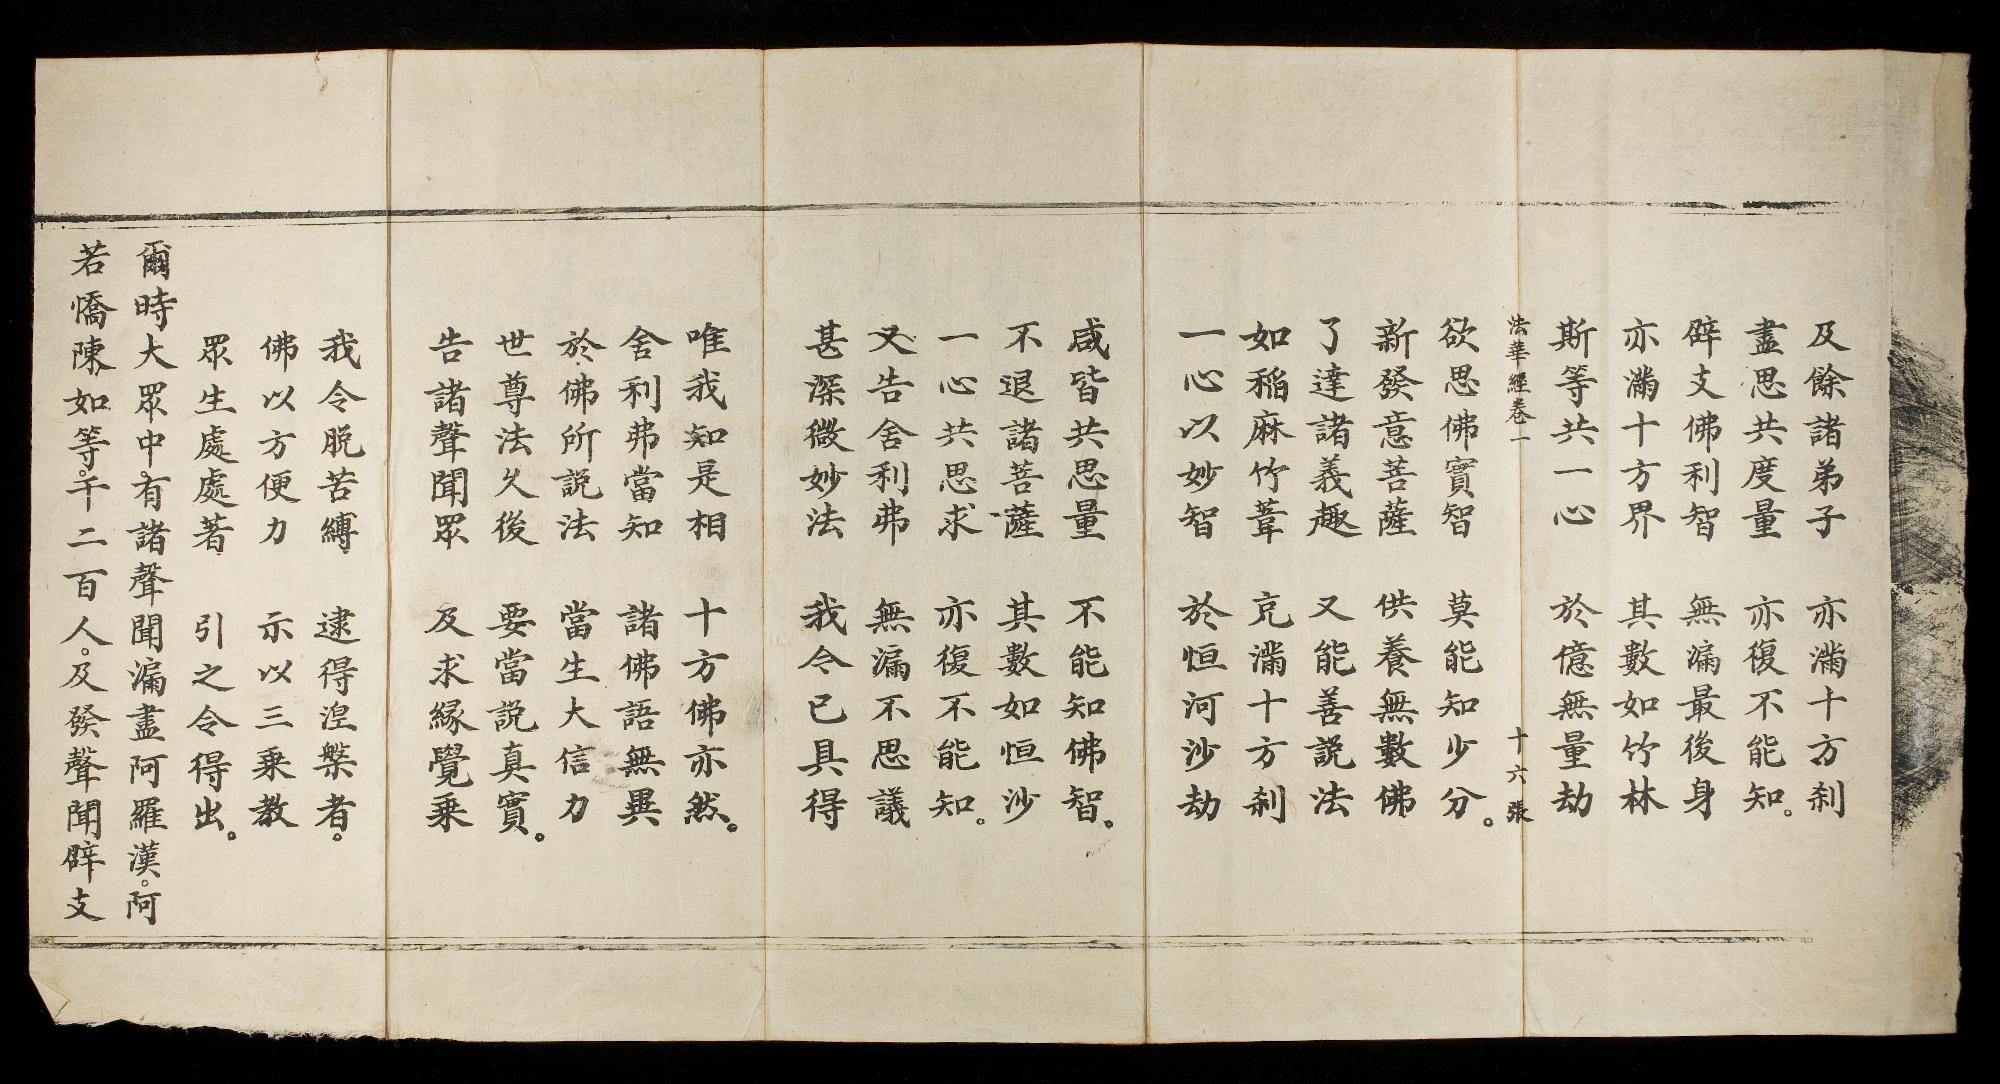 及餘諸弟子　亦滿十方刹
盡思共度量　亦復不能知。
辟支佛利智　無漏最後身
亦滿十方界　其數如竹林
斯等共一心　於億無量劫
法華經卷一　十六張
欲思佛實智　莫能知少分。
新發意菩薩　供養無數佛
了達諸義趣　又能善説法
如稻麻竹葦　充滿十方刹
一心以妙智　於恒河沙劫
咸皆共思量　不能知佛智。
不退諸菩薩　其數如恒沙
一心共思求　亦復不能知。
又告舍利弗　無漏不思議
甚深微妙法　我今已具得
唯我知是相　十方佛亦然。
舍利弗當知　諸佛語無異
於佛所説法　當生大信力
世尊法久後　要當説真實。
告諸聲聞眾　及求緣覺乘
我令脫苦縛　逮得涅槃者。
佛以方便力　示以三乘教
眾生處處著　引之令得出。
爾時大眾中。有諸聲聞漏盡阿羅漢。阿
若憍陳如等。千二百人。及發聲聞辟支